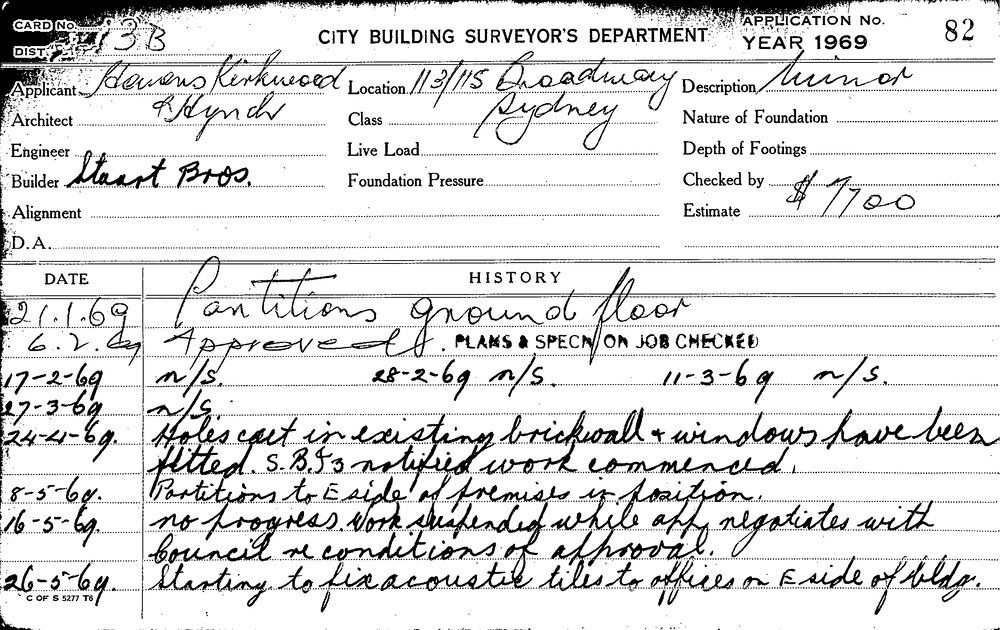 CARD No.
DIST. 13B
CITY BUILDING SURVEYOR'S DEPARTMENT
APPLICATION No. 82
YEAR 1969
Applicant Kirkwood
Location 113/115 Broadway
Description Minor
Architect
Class Sydney
Nature of Foundation
Engineer
Live Load
Depth of Footings
Builder Stuart Bros.
Foundation Pressure
Checked by
Alignment
Estimate $ 7700
D.A.
DATE HISTORY
21.1.69 Partitions ground floor
6.2.69 Approved. PLANS & SPECN ON JOB CHECKED
17-2-69 n/s. 28-2-69 n/s. 11-3-69 n/s.
27-3-69 n/s.
24-4-69. Holes cut in existing brickwall + windows have been
fitted. S.B.I3 notified work commenced.
8-5-69. Partitions to E side of premises in position.
16-5-69. no progress. Work suspended while app. negotiates with
Council re conditions of approval.
26-5-69. Starting to fix acoustic tiles to offices on E side of bldg.
C OF S 5277 T6